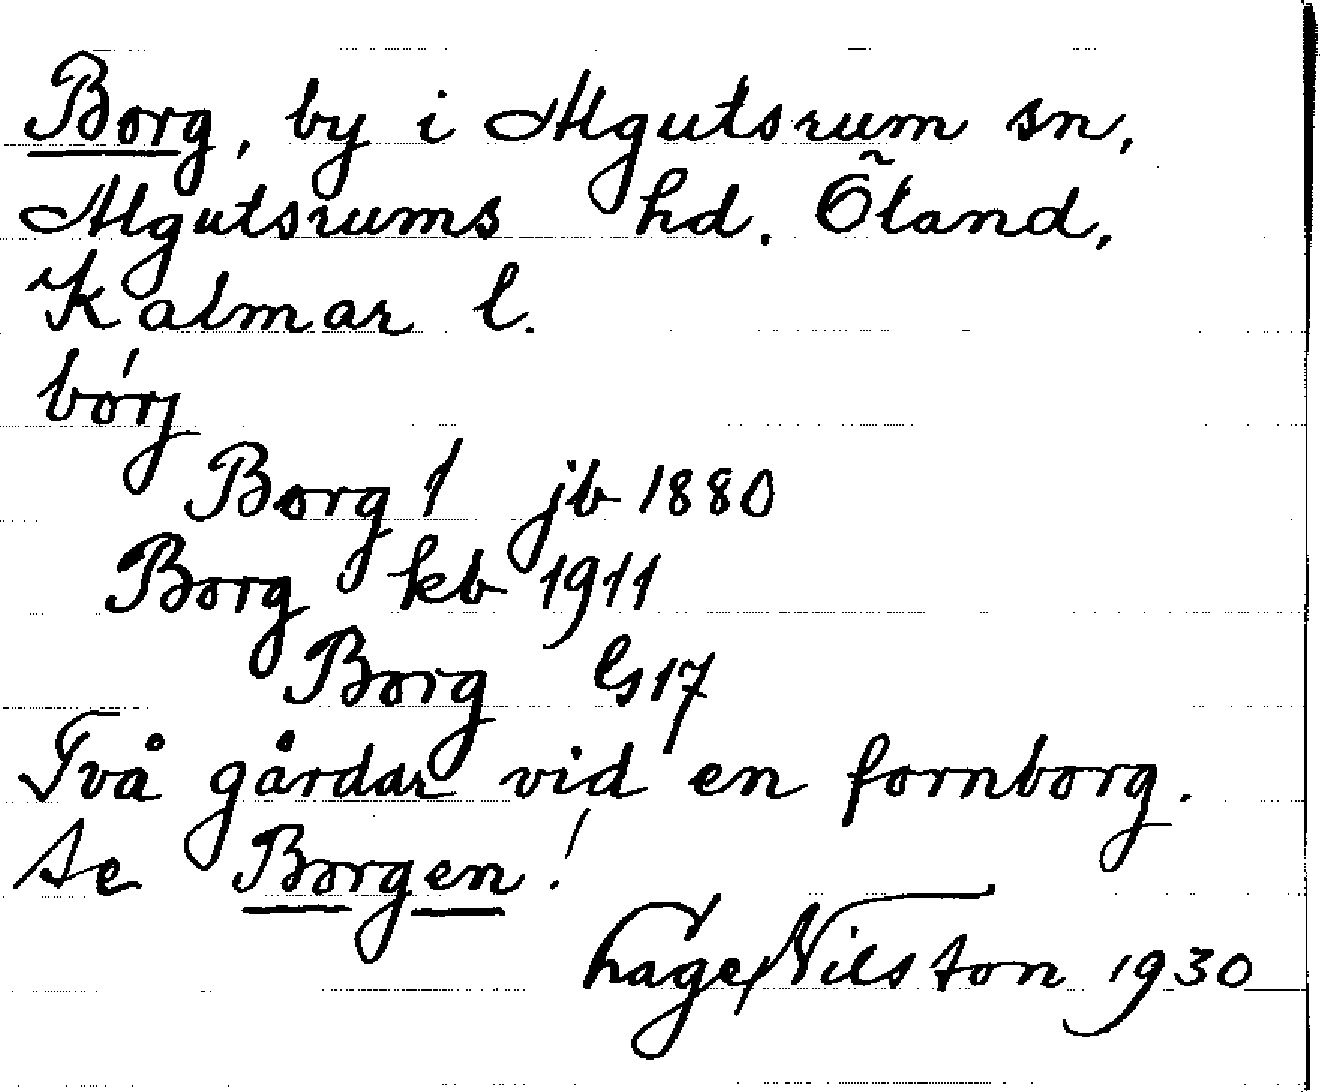 Borg, by i Algutsrum sn,
Algutsrums hd. Öland,
Kalmar l.
bórj
Borg 1 jb 1880
Borg kb 1911
Borg GS17
Två gårdar vid en fornborg.
Se Borgen!
Nilsson 1930